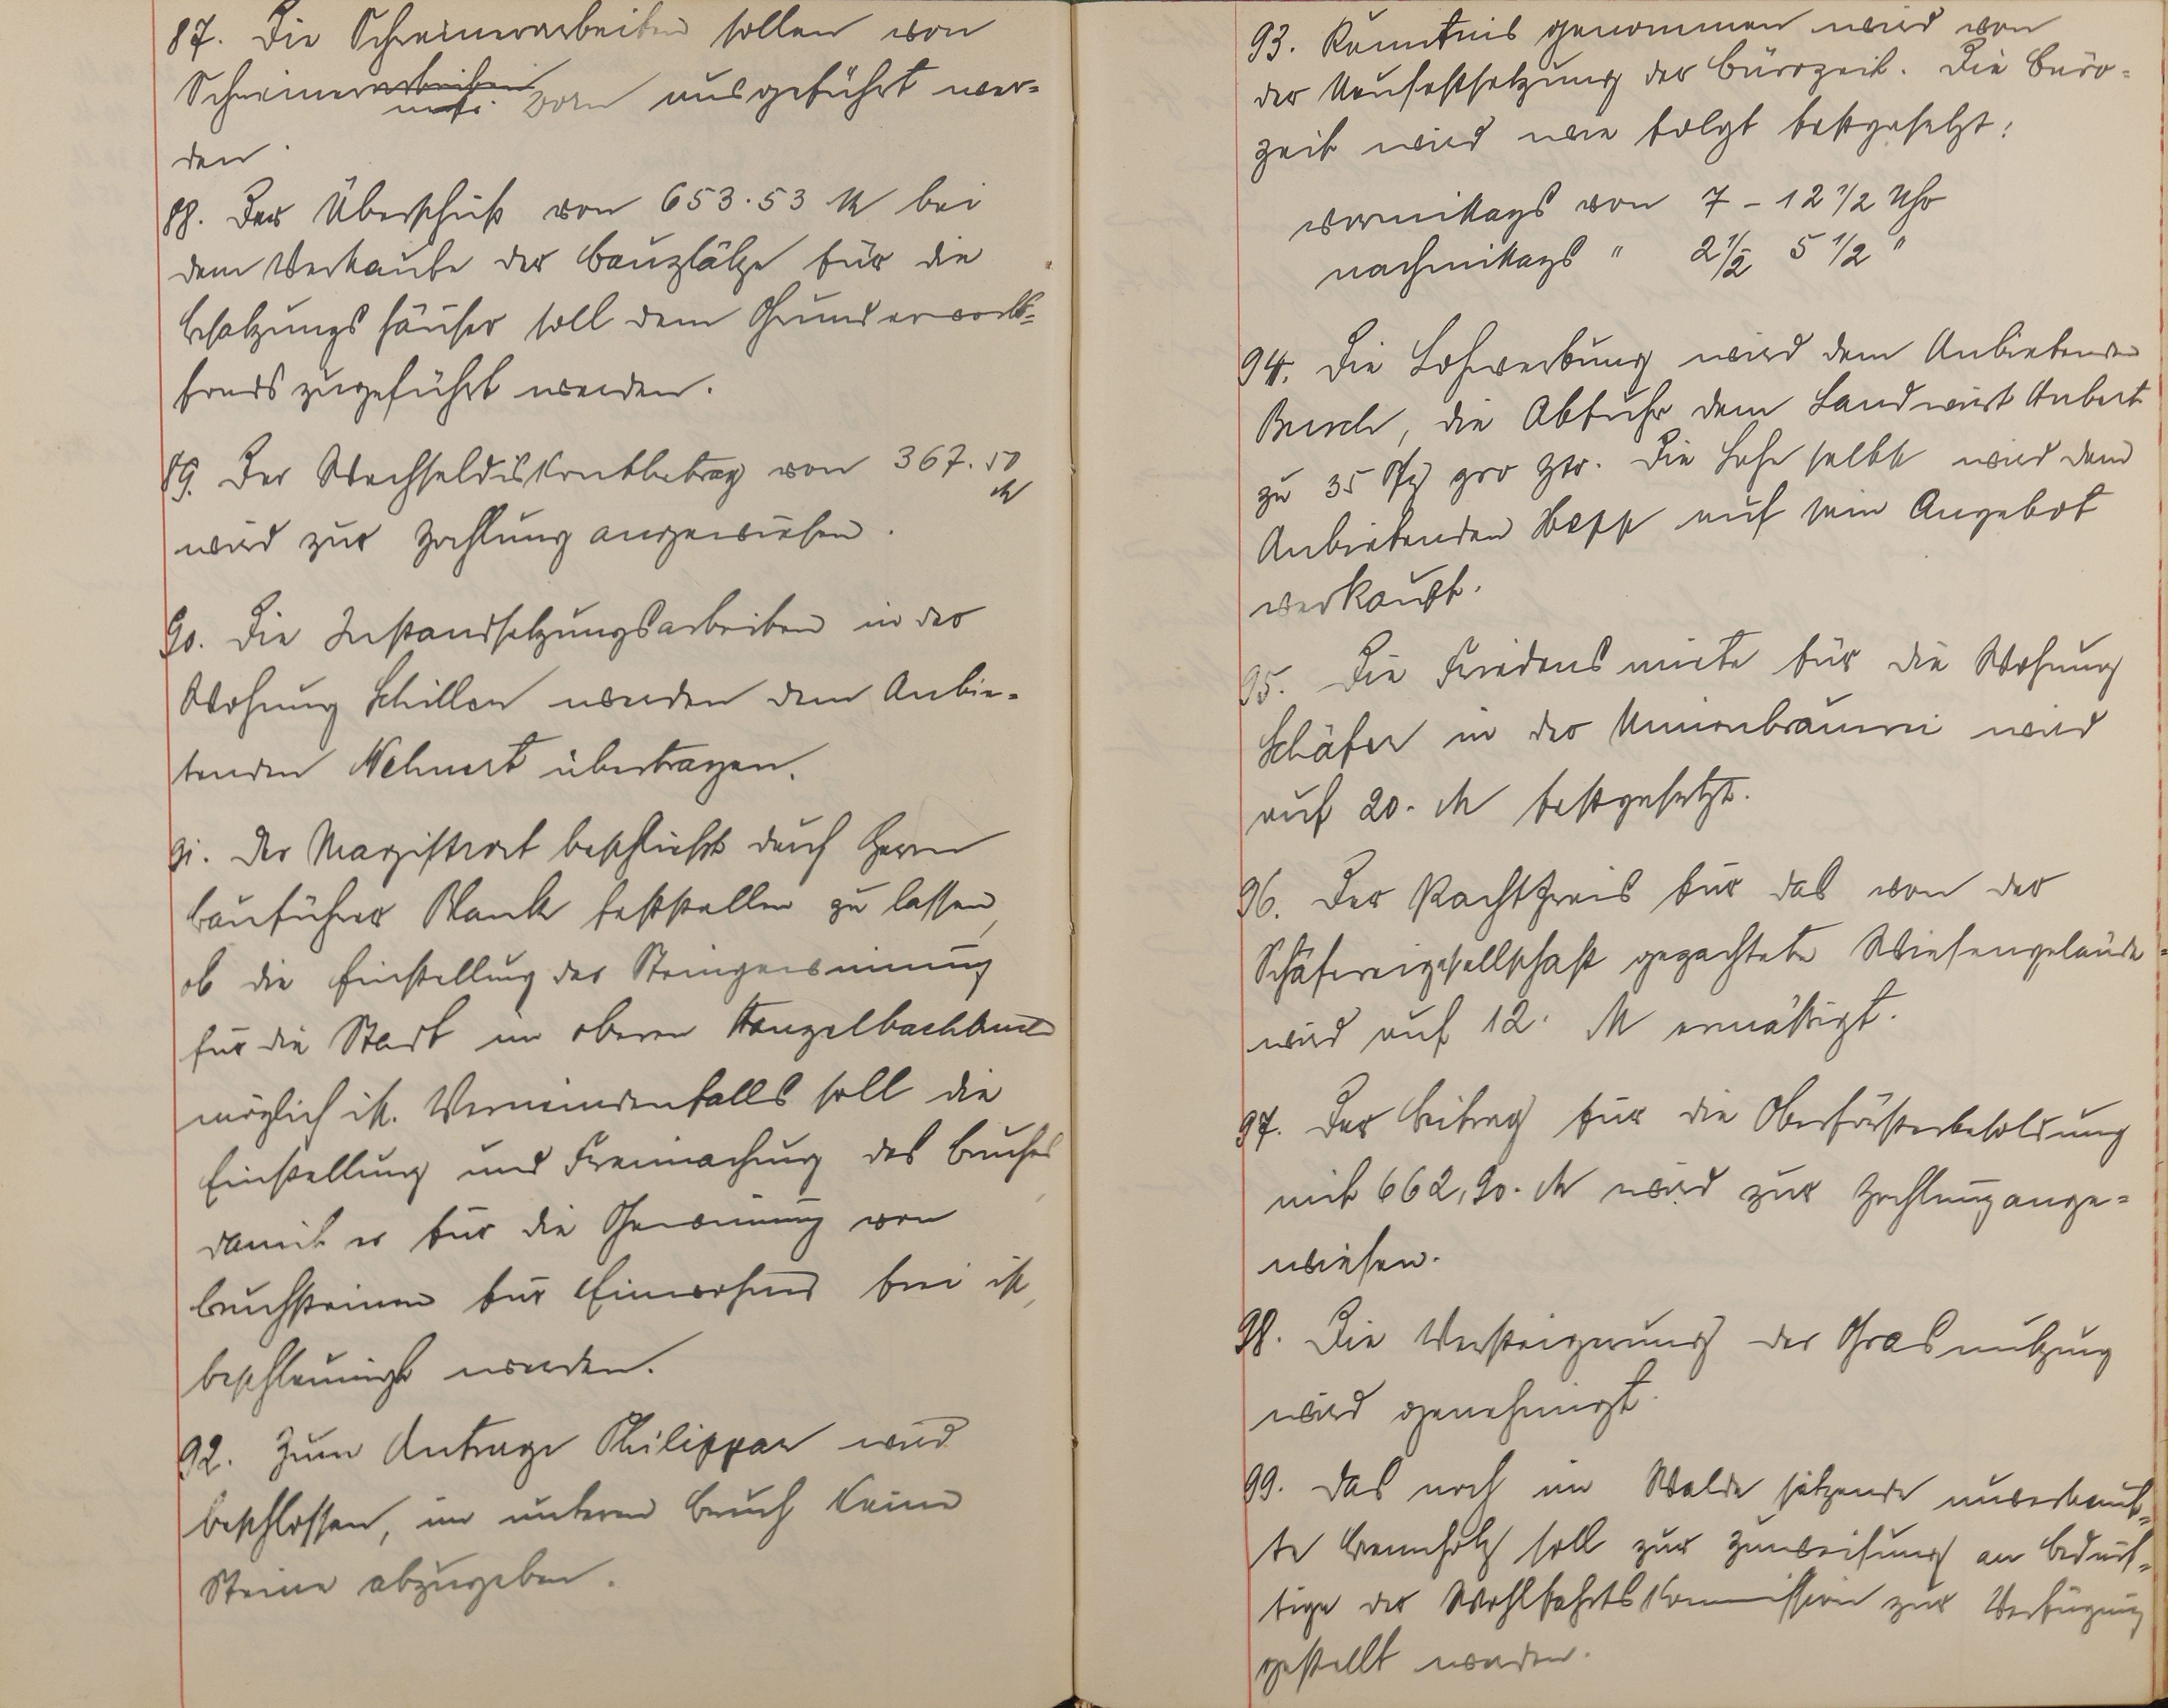 87. Die Schreinerarbeiten sollen von
Schreinermstr. Dorn ausgeführt wer=
den.
88. Der Überschuß von 653.53 M bei
dem Verkaufe der Bauplätze für die
Besatzungshäuser soll dem Grunderwerbs=
fonds zugeführt werden.
89. Der Wechseldiskontbetrag von 367.50
M
wird zur Zahlung angewiesen.
90. Die Instandsetzungsarbeiten in der
Wohnung Schillen werden dem Anbie=
tenden Nehnert übertragen.
91. Der Magistrat beschließt durch Herrn
Bauführer Blank feststellen zu lassen,
ob die Einstellung der Steingewinnung
für die Stadt im oberen
möglich ist. Verneinendenfalls soll die
Einstellung und Freimachung des Bruches
damit er für die Gewinnung von
Bruchsteinen für Einwohner frei ist,
beschleunigt werden.
92. Zum Antrage Philippar wird
beschlossen, im unteren Bruch keine
Steine abzugeben.
93. Kenntnis genommen wird von
der Neufestsetzung der Bürozeit. Die Büro=
zeit wird wie folgt festgesetzt:
vormittags von 7 - 12 1/2 Uhr
nachmittags " 2 1/2 5 1/2 "
94. Die Lohwerbung wird dem Anbietenden
Busch, die Abfuhr dem Landwirt Aubert
zu 35 Pfg pro Ztr. Die Lohe selbst wird dem
Anbietenden Hepp auf sein Angebot
verkauft.
95. Die Friedensmiete für die Wohnung
Schäfer in der Unionbrauerei wird
auf 20. M festgesetzt.
96. Der Pachtpreis für das von der
Schäfereigesellschaft gepachtete Wiesengelände
wird auf 12. M ermäßigt.
97. Der Beitrag für die Oberförsterbesoldung
mit 662,90. M wird zur Zahlung ange=
wiesen.
98. Die Versteigerung der Grasnutzung
wird genehmigt.
99. Das noch im Walde sitzende unverkauf=
te Brennholz soll zur Zuweisung an Bedürf=
tige der Wohlfahrtskommission zur Verfügung
gestellt werden.